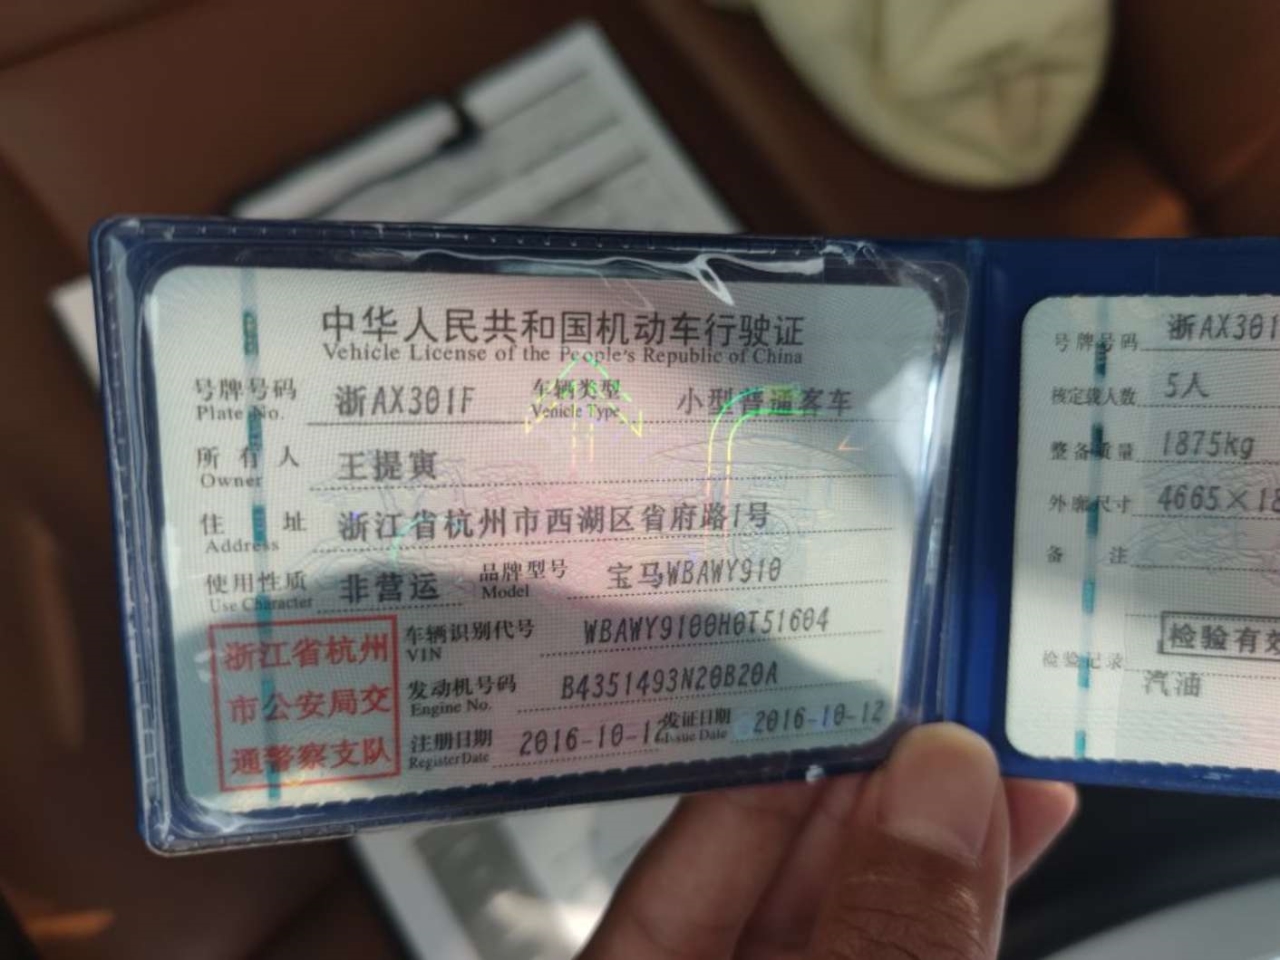 中华人民共和国机动车行驶证
Vehicle License of the People's Republic of China
号牌号码 浙AX301F 车辆类型 小型普通客车
Plate No. Vehicle Type
所有人 王提寅
Owner
住址 浙江省杭州市西湖区省府路1号
Address
使用性质 非营运 品牌型号 宝马WBAWY910
Use Character Model
浙江省杭州
市公安局交
通警察支队
车辆识别代号 WBAWY9100H0T51604
VIN
发动机号码 B4351493N20B20A
Engine No.
注册日期 2016-10-12 发证日期 2016-10-12
Register Date Issue Date
号牌号码 浙AX301
核定载人数 5人
整备质量 1875kg
外廓尺寸 4665×18
备注
检验有效
检验记录
汽油